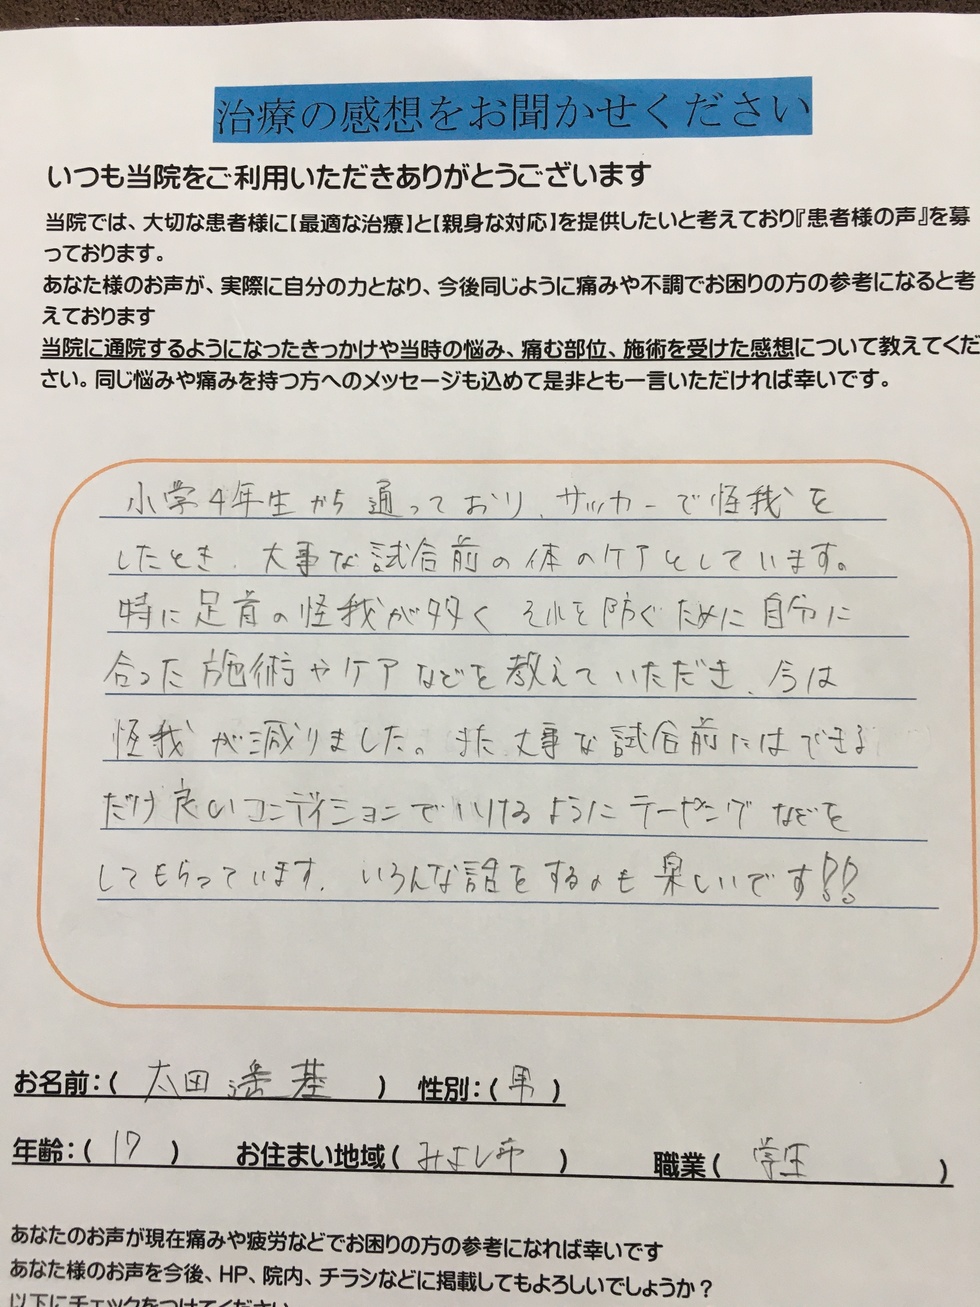 治療の感想をお聞かせください
いつも当院をご利用いただきありがとうございます
当院では、大切な患者様に【最適な治療】と【親身な対応】を提供したいと考えており『患者様の声』を募
っております。
あなた様のお声が、実際に自分の力となり、今後同じように痛みや不調でお困りの方の参考になると考
えております
当院に通院するようになったきっかけや当時の悩み、痛む部位、施術を受けた感想について教えてくだ
さい。同じ悩みや痛みを持つ方へのメッセージも込めて是非とも一言いただければ幸いです。
小学4年生から通っており、サッカーで怪我を
したとき、大事な試合前の体のケアとしています。
特に足首の怪我が多く それを防ぐために自分に
合った施術やケアなどを教えていただき、今は
怪我が減りました。また大事な試合前にはできる
だけ良いコンディションでいけるようにテーピングなどを
してもらっています。いろんな話をするのも楽しいです!!
お名前:( 太田 基 ) 性別:( 男 )
年齢:( 17 ) お住まい地域( みよし市 ) 職業( 学生 )
あなたのお声が現在痛みや疲労などでお困りの方の参考になれば幸いです
あなた様のお声を今後、HP、院内、チラシなどに掲載してもよろしいでしょうか?
以下にチェックをつけてください